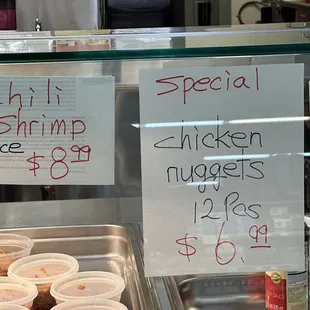 $8
chili
Shrimp
$8.99
Special
chicken
nuggets
12 Pcs
$6.99